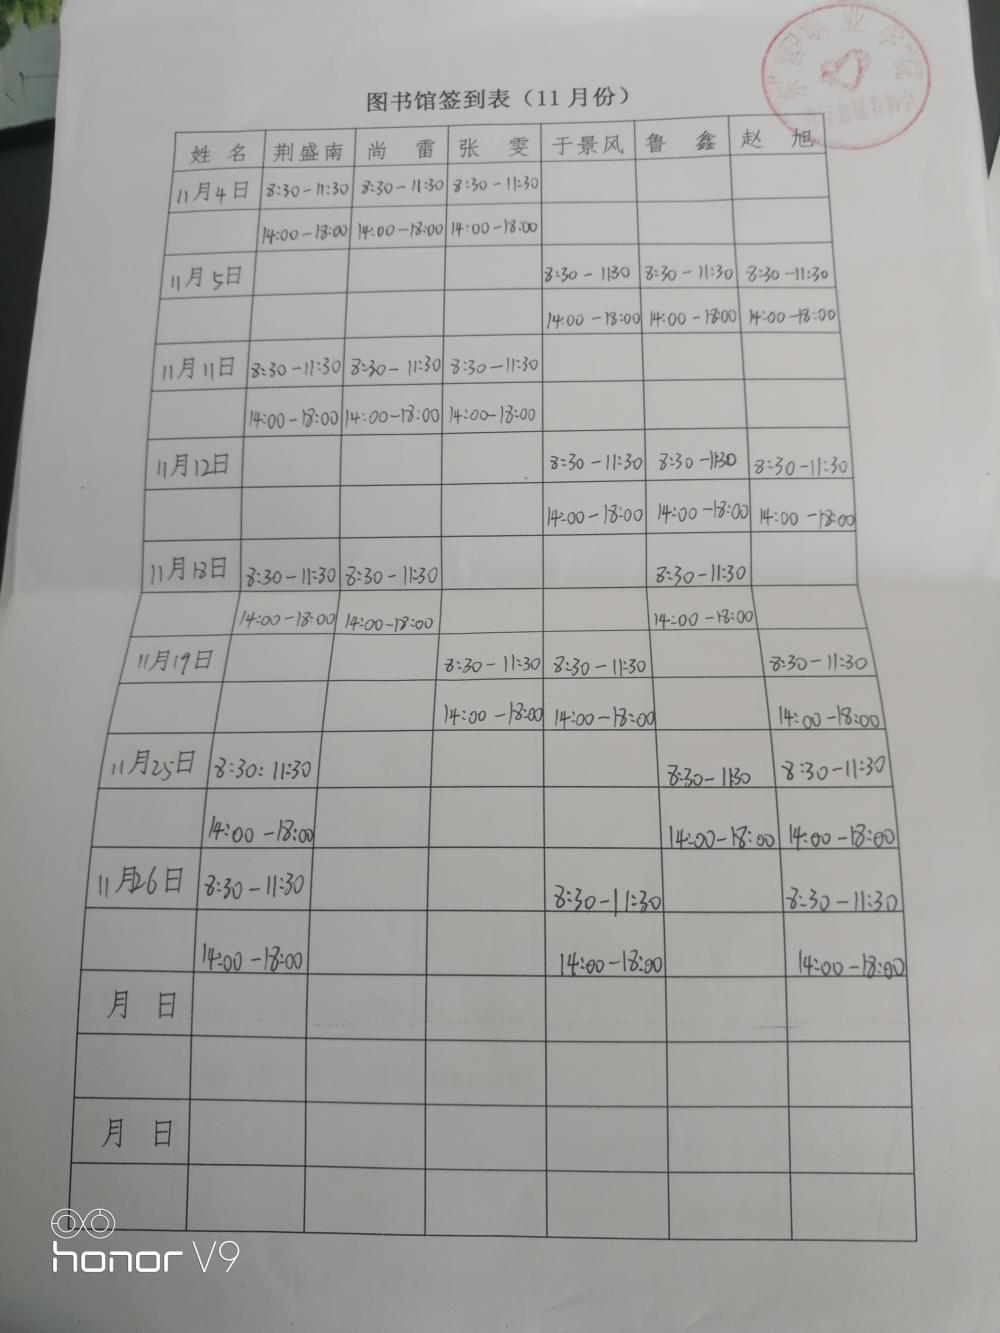 东营职业学院
图书馆签到表（11月份）
姓 名 荆盛南 尚 雷 张 雯 于景风 鲁 鑫 赵 旭
11月4日 8:30-11:30 8:30-11:30 8:30-11:30
14:00-18:00 14:00-18:00 14:00-18:00
11月5日 8:30-1130 8:30-11:30 8:30-11:30
14:00-18:00 14:00-18:00 14:00-18:00
11月11日 8:30-11:30 8:30-11:30 8:30-11:30
14:00-18:00 14:00-18:00 14:00-18:00
11月12日 8:30-11:30 8:30-11:30 8:30-11:30
14:00-18:00 14:00-18:00 14:00-18:00
11月18日 8:30-11:30 8:30-11:30 8:30-11:30
14:00-18:00 14:00-18:00 14:00-18:00
11月19日 8:30-11:30 8:30-11:30 8:30-11:30
14:00-18:00 14:00-18:00 14:00-18:00
11月25日 8:30:11:30 8:30-1130 8:30-11:30
14:00-18:00 14:00-18:00 14:00-18:00
11月26日 8:30-11:30 8:30-11:30 8:30-11:30
14:00-18:00 14:00-18:00 14:00-18:00
月 日
月 日
honor V9